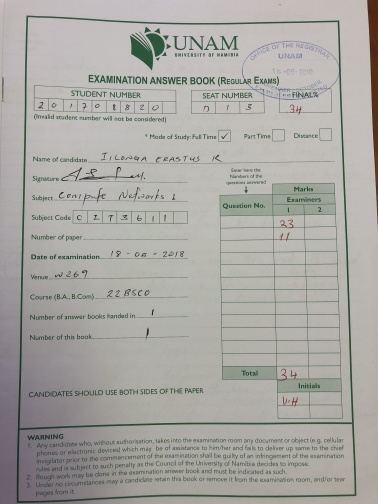 UNAM
UNIVERSITY OF NAMIBIA
OFFICE OF THE REGISTRAR
UNAM
EXAMINATION ANSWER BOOK (REGULAR EXAMS)
STUDENT NUMBER
SEAT NUMBER
FINAL%
2 0 1 7 0 8 8 2 0
34
(Invalid student number will not be considered)
* Mode of Study: Full Time ✓ Part Time Distance
Name of candidate IILONGA ERASTUS R
Signature
Enter here the Numbers of the questions answered
Subject Networks
Question No.
Marks
Examiners
1 2
Subject Code C I T 3 6 1 1
23
Number of paper
11
Date of examination 18 - 2018
Venue W269
Course (B.A., B.Com) 22BSCO
Number of answer books handed in 1
Number of this book 1
Total 34
Initials
CANDIDATES SHOULD USE BOTH SIDES OF THE PAPER
WARNING
1. Any candidate who, without authorisation, takes into the examination room any document or object (e.g. cellular
phones or electronic devises) which may be of assistance to him/her and fails to deliver up same to the chief
invigilator prior to the commencement of the examination shall be guilty of an infringement of the examination
rules and is subject to such penalty as the Council of the University of Namibia decides to impose.
2. Rough work may be done in the examination answer book and must be indicated as such.
3. Under no circumstances may a candidate retain this book or remove it from the examination room, and/or tear
pages from it.